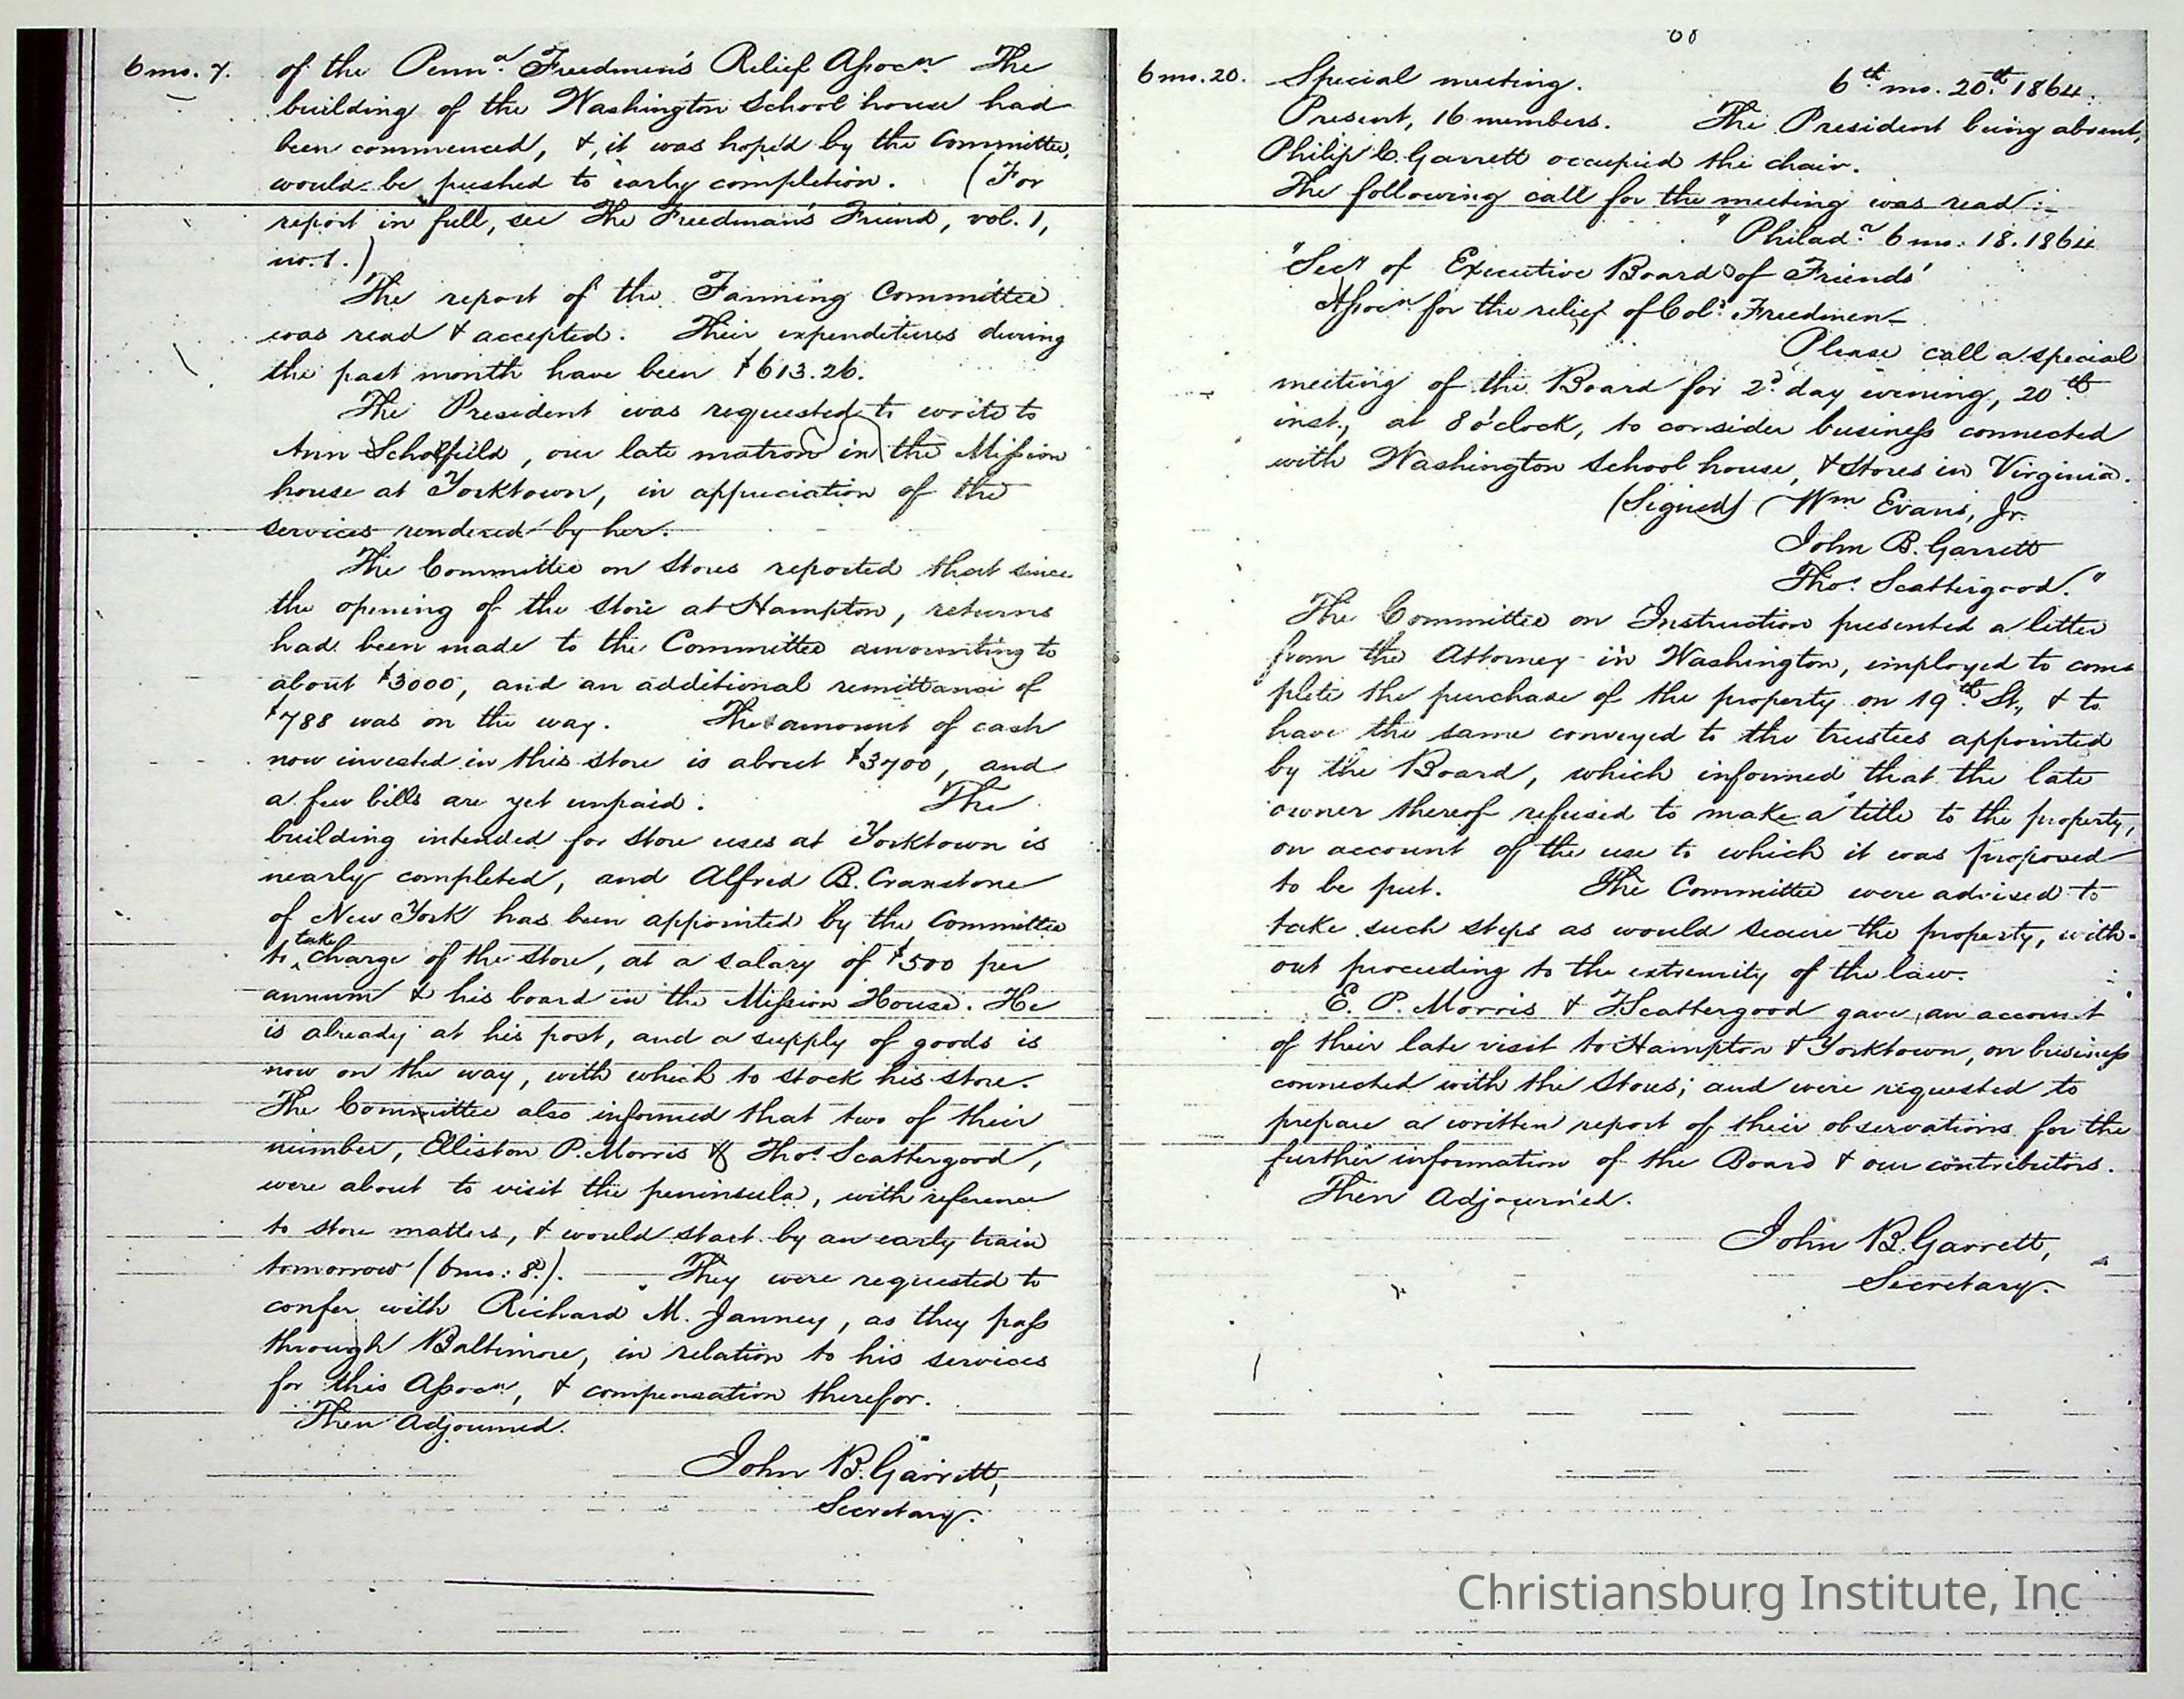 6 mo. 7.
of the Penn.a Freedmen's Relief Assocn. The
building of the Washington School house had
been commenced, &, it was hoped by the Committee,
would be pushed to early completion. (For
report in full, see The Freedman's Friend, vol. 1,
no. 1.)
The report of the Farming Committee
was read & accepted. Their expenditures during
the past month have been $613.26.
The President was requested to write to
Ann Scholfield, our late matron in the Mission
house at Yorktown, in appreciation of the
services rendered by her.
The Committee on Stores reported that since
the opening of the store at Hampton, returns
had been made to the Committee amounting to
about $3000, and an additional remittance of
$788 was on the way. The amount of cash
now invested in this store is about $3700, and
a few bills are yet unpaid. The
building intended for store uses at Yorktown is
nearly completed, and Alfred B. Cranstone
of New York has been appointed by the Committee
to take charge of the store, at a salary of $500 per
annum & his board in the Mission House. He
is already at his post, and a supply of goods is
now on the way, with which to stock his store.
The Committee also informed that two of their
number, Elliston P. Morris & Thos. Scattergood,
were about to visit the peninsula, with reference
to store matters, & would start by an early train
tomorrow (6mo: 8.). — They were requested to
confer with Richard M. Janney, as they pass
through Baltimore, in relation to his services
for this Assocn., & compensation therefor.
Then Adjourned.
John B. Garrett,
Secretary.
6 mo. 20.
Special meeting. 6th mo. 20th 1864.
Present, 16 members. The President being absent,
Philip C. Garrett occupied the chair.
The following call for the meeting was read:—
"Philada. 6 mo. 18. 1864
"Secy of Executive Board of Friends'
Assocn for the relief of Cold. Freedmen—
Please call a special
meeting of the Board for 2d. day evening, 20th
inst., at 8 o'clock, to consider business connected
with Washington School house, & Stores in Virginia.
(Signed) Wm Evans, Jr.
John B. Garrett
Thos. Scattergood."
The Committee on Instruction presented a letter
from the Attorney in Washington, employed to com-
plete the purchase of the property on 19th St., & to
have the same conveyed to the trustees appointed
by the Board, which informed that the late
owner thereof refused to make a title to the property,
on account of the use to which it was proposed
to be put. The Committee were advised to
take such steps as would secure the property, with-
out proceeding to the extremity of the law.
E. P. Morris & T Scattergood gave an account
of their late visit to Hampton & Yorktown, on business
connected with the Stores; and were requested to
prepare a written report of their observations for the
further information of the Board & our contributors.
Then Adjourned.
John B. Garrett,
Secretary.
Christiansburg Institute, Inc